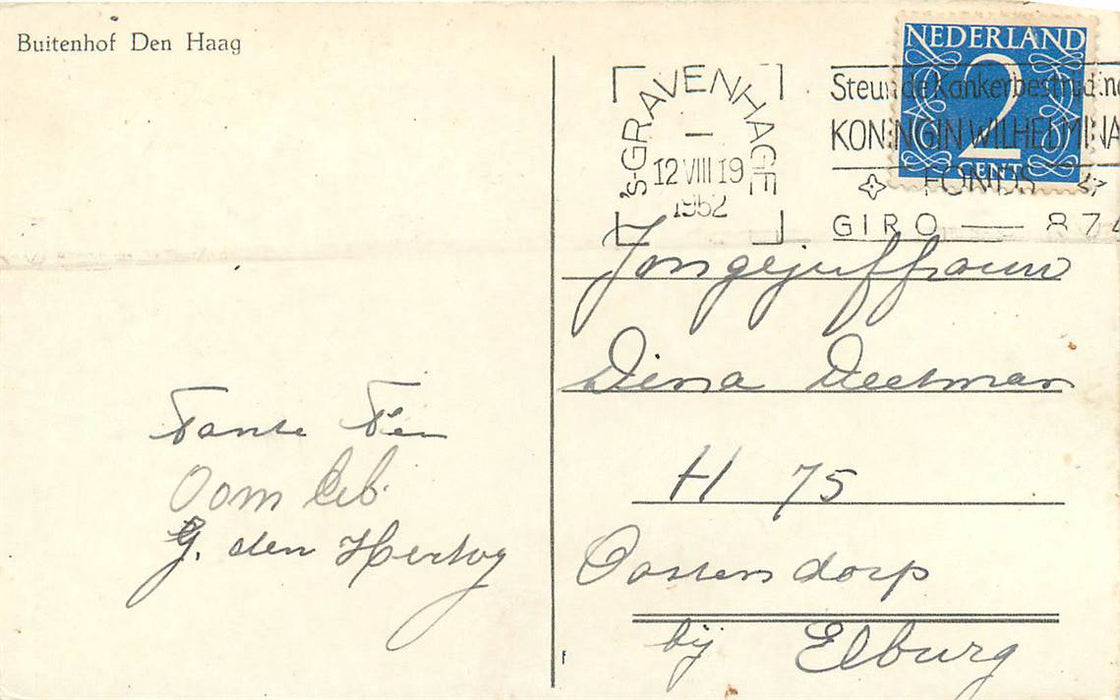 Buitenhof Den Haag
NEDERLAND
2
CENT
's-GRAVENHAGE
12 VIII 19
1952
Steunt de Kankerbestrijding
KONINGIN WILHELMINA
FONDS
GIRO — 874
Jongejuffrouw
Dina Deetman
H 75
Oostendorp
bij Elburg
Tante Fen
Oom Eib.
G. den Hertog